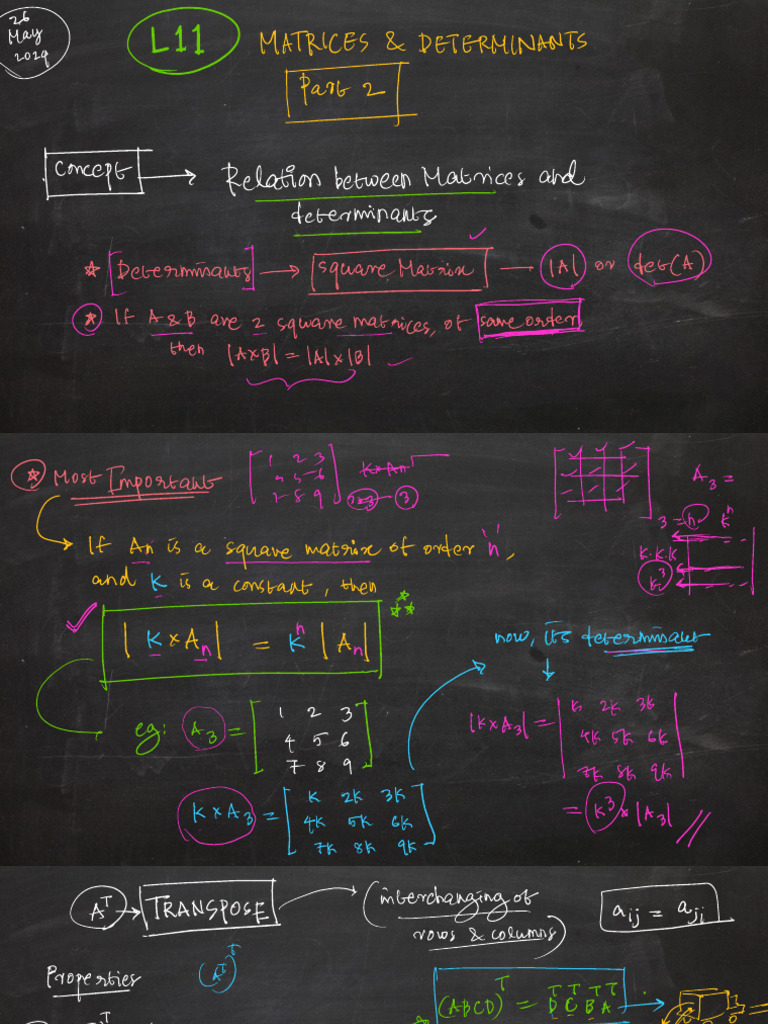 26
May
2029
L11
MATRICES & DETERMINANTS
Part 2
Concept → Relation between Matrices and
determinants
* [Determinants] → Square Matrix — |A| or det(A)
* If A & B are 2 square matrices, of same order,
then |A×B| = |A|×|B|
* Most Important
1 2 3
4 5 6
7 8 9
K×An
2×3 — 3
A3 =
3 = n K^n
K·K·K
K^3
If An is a square matrix of order 'n',
and K is a constant, then
|K×An| = K^n |An|
now, its determinant
eg: A3 =
1 2 3
4 5 6
7 8 9
|K×A3| =
K 2K 3K
4K 5K 6K
7K 8K 9K
= K^3 × |A3| //
K×A3 =
K 2K 3K
4K 5K 6K
7K 8K 9K
A^T → TRANSPOSE
(interchanging of
rows & columns)
aij = aji
Properties
(A^T)^T
(ABCD)^T = D^T C^T B^T A^T